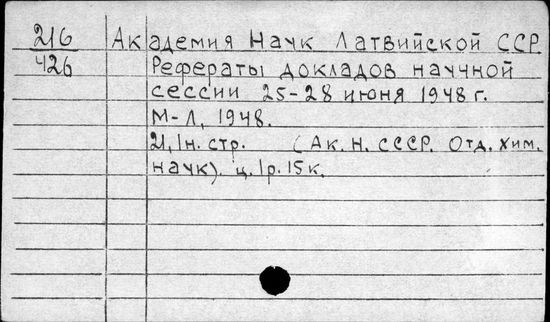 216 Академия Наук Латвийской ССР
426 Рефераты докладов научной
сессии 25-28 июня 1948 г.
М-Л, 1948.
21, 1н. стр. (Ак. Н. СССР. Отд. хим.
наук). ц. 1р. 15 к.